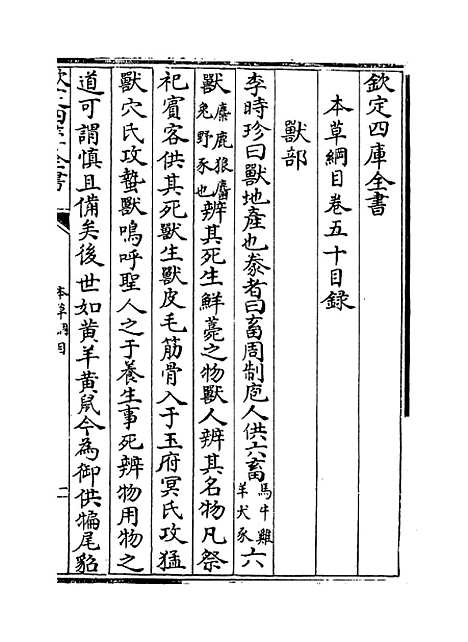 欽定四庫全書
本草綱目卷五十目録
獸部
李時珍曰獸地產也豢者曰畜周制庖人供六畜馬牛雞羊犬豕六
獸麋鹿狼麕兔野豕也辨其死生鮮薧之物獸人辨其名物凡祭
祀賓客供其死獸生獸皮毛筋骨入于玉府冥氏攻猛
獸穴氏攻蟄獸鳴呼聖人之于養生事死辨物用物之
道可謂慎且備矣後世如黄羊黄鼠今為御供犏尾貂
欽定四庫全書
本草綱目